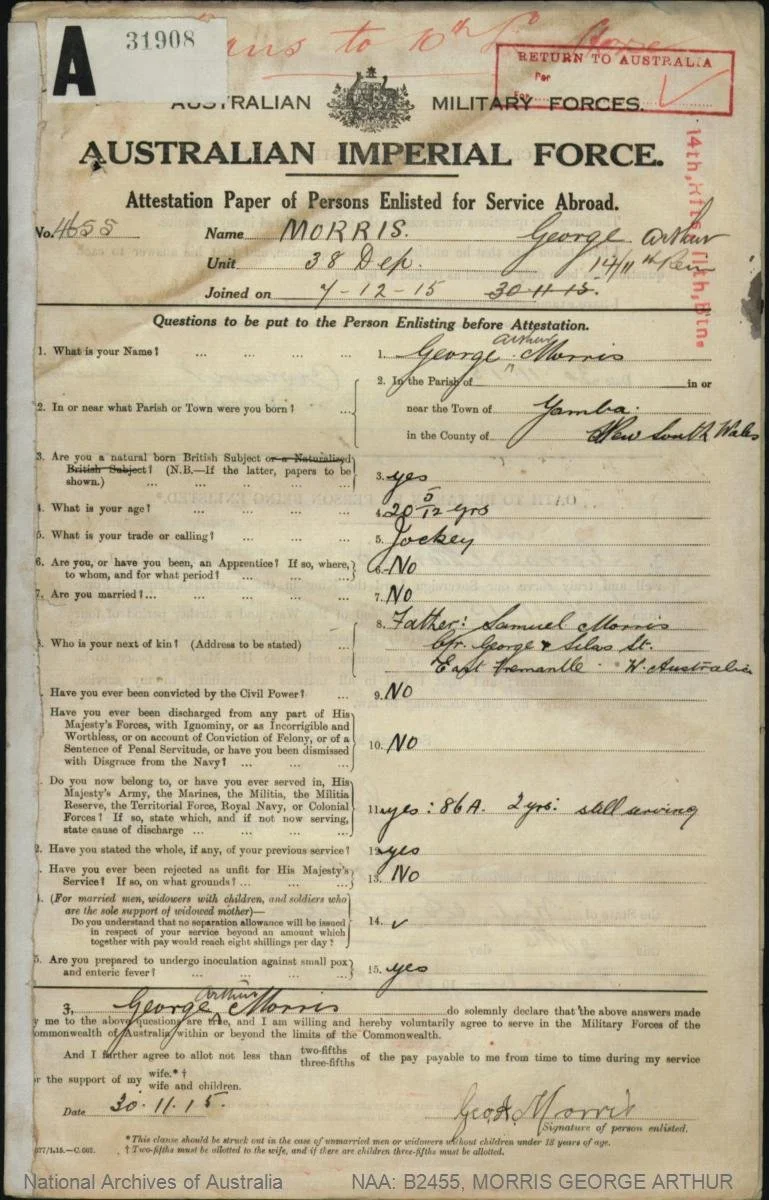 A 31908
Trans to 10th
RETURN TO AUSTRALIA
Per
For
AUSTRALIAN MILITARY FORCES.
AUSTRALIAN IMPERIAL FORCE.
14th, Rfts. 11th, Btn.
Attestation Paper of Persons Enlisted for Service Abroad.
No. 4655 Name MORRIS. George Arthur
Unit 38 Dep. 14/11th Rein
Joined on 7-12-15 30 11 15.
Questions to be put to the Person Enlisting before Attestation.
1. What is your Name? ... ... ... ... 1. George Arthur Morris
2. In or near what Parish or Town were you born? ... 2. In the Parish of in or
near the Town of Yamba.
in the County of New South Wales
3. Are you a natural born British Subject or a Naturalised
British Subject? (N.B.—If the latter, papers to be
shown.) ... ... ... ... ... 3. yes
4. What is your age? ... ... ... ... 4. 20 5/12 yrs
5. What is your trade or calling? ... ... ... 5. Jockey
6. Are you, or have you been, an Apprentice? If so, where,
to whom, and for what period? ... ... ... 6. No
7. Are you married?... ... ... ... ... 7. No
8. Father: Samuel Morris
. Who is your next of kin? (Address to be stated) ... c/r. George & Silas St.
East Fremantle. W. Australia
. Have you ever been convicted by the Civil Power? ... 9. No
Have you ever been discharged from any part of His
Majesty's Forces, with Ignominy, or as Incorrigible and
Worthless, or on account of Conviction of Felony, or of a
Sentence of Penal Servitude, or have you been dismissed
with Disgrace from the Navy? ... ... ... 10. No
. Do you now belong to, or have you ever served in, His
Majesty's Army, the Marines, the Militia, the Militia
Reserve, the Territorial Force, Royal Navy, or Colonial
Forces? If so, state which, and if not now serving,
state cause of discharge ... ... ... ... 11. yes: 86A. 2 yrs: still serving
2. Have you stated the whole, if any, of your previous service? 12. yes
. Have you ever been rejected as unfit for His Majesty's
Service? If so, on what grounds? ... ... ... 13. No
. (For married men, widowers with children, and soldiers who
are the sole support of widowed mother)—
Do you understand that no separation allowance will be issued
in respect of your service beyond an amount which
together with pay would reach eight shillings per day? 14. ✓
5. Are you prepared to undergo inoculation against small pox
and enteric fever? ... ... ... ... 15. yes
I, George Arthur Morris do solemnly declare that the above answers made
y me to the above questions are true, and I am willing and hereby voluntarily agree to serve in the Military Forces of the
ommonwealth of Australia within or beyond the limits of the Commonwealth.
And I further agree to allot not less than two-fifths three-fifths of the pay payable to me from time to time during my service
or the support of my wife.* † wife and children.
Date 30.11.15. Geo A. Morris
(Signature of person enlisted.
* This clause should be struck out in the case of unmarried men or widowers without children under 18 years of age.
677/1.15.—C.662. † Two-fifths must be allotted to the wife, and if there are children three-fifths must be allotted.
National Archives of Australia NAA: B2455, MORRIS GEORGE ARTHUR